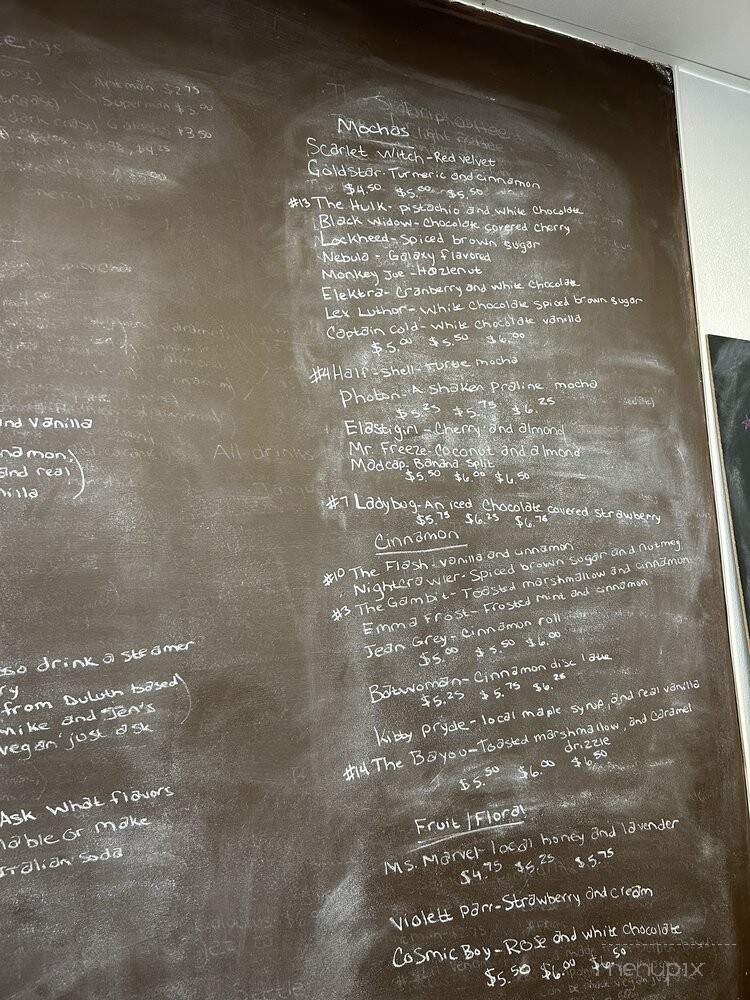 Aroman $2.75
Superman $5.00
$3.50
$4.25
$5.00
Mochas
Scarlet Witch-Red velvet
Goldstar-Turmeric and cinnamon
$4.50 $5.00 $5.50
#13 The Hulk- pistachio and white chocolate
Black Widow-Chocolate covered cherry
Lockheed-Spiced brown sugar
Nebula - Galaxy flavored
Monkey Joe-Hazlenut
Elektra-Cranberry and white chocolate
Lex Luthor-White chocolate spiced brown sugar
Captain Cold-White chocolate vanilla
$5.00 $5.50 $6.00
#4 Half-Shell-Turtle mocha
Photon-A shaken praline mocha
$5.25 $5.75 $6.25
Elastigirl-Cherry and almond
Mr. Freeze-Coconut and almond
Madcap-Banana Split
$5.50 $6.00 $6.50
#7 Ladybug-An iced chocolate covered strawberry
$5.75 $6.25 $6.75
Cinnamon
#10 The Flash-vanilla and cinnamon
Nightcrawler-Spiced brown sugar and nutmeg
#3 The Gambit-Toasted marshmallow and cinnamon
Emma Frost-Frosted mint and cinnamon
Jean Grey-Cinnamon roll
$5.00 $5.50 $6.00
Batwoman-Cinnamon disc latte
$5.25 $5.75 $6.25
Kitty pryde-local maple syrup, and real vanilla
#14 The Bayou-Toasted marshmallow, and caramel
drizzle
$5.50 $6.00 $6.50
Fruit/Floral
Ms. Marvel-local honey and lavender
$4.75 $5.25 $5.75
Violett Parr-Strawberry and cream
Cosmic Boy-Rose and white chocolate
$5.50 $6.00 $6.50
and vanilla
namon,
and real
nilla
All drinks
sso drink a steamer
ry
from Duluth based
Mike and Jen's
vegan just ask
Ask what flavors
lable or make
Italian soda
menupix